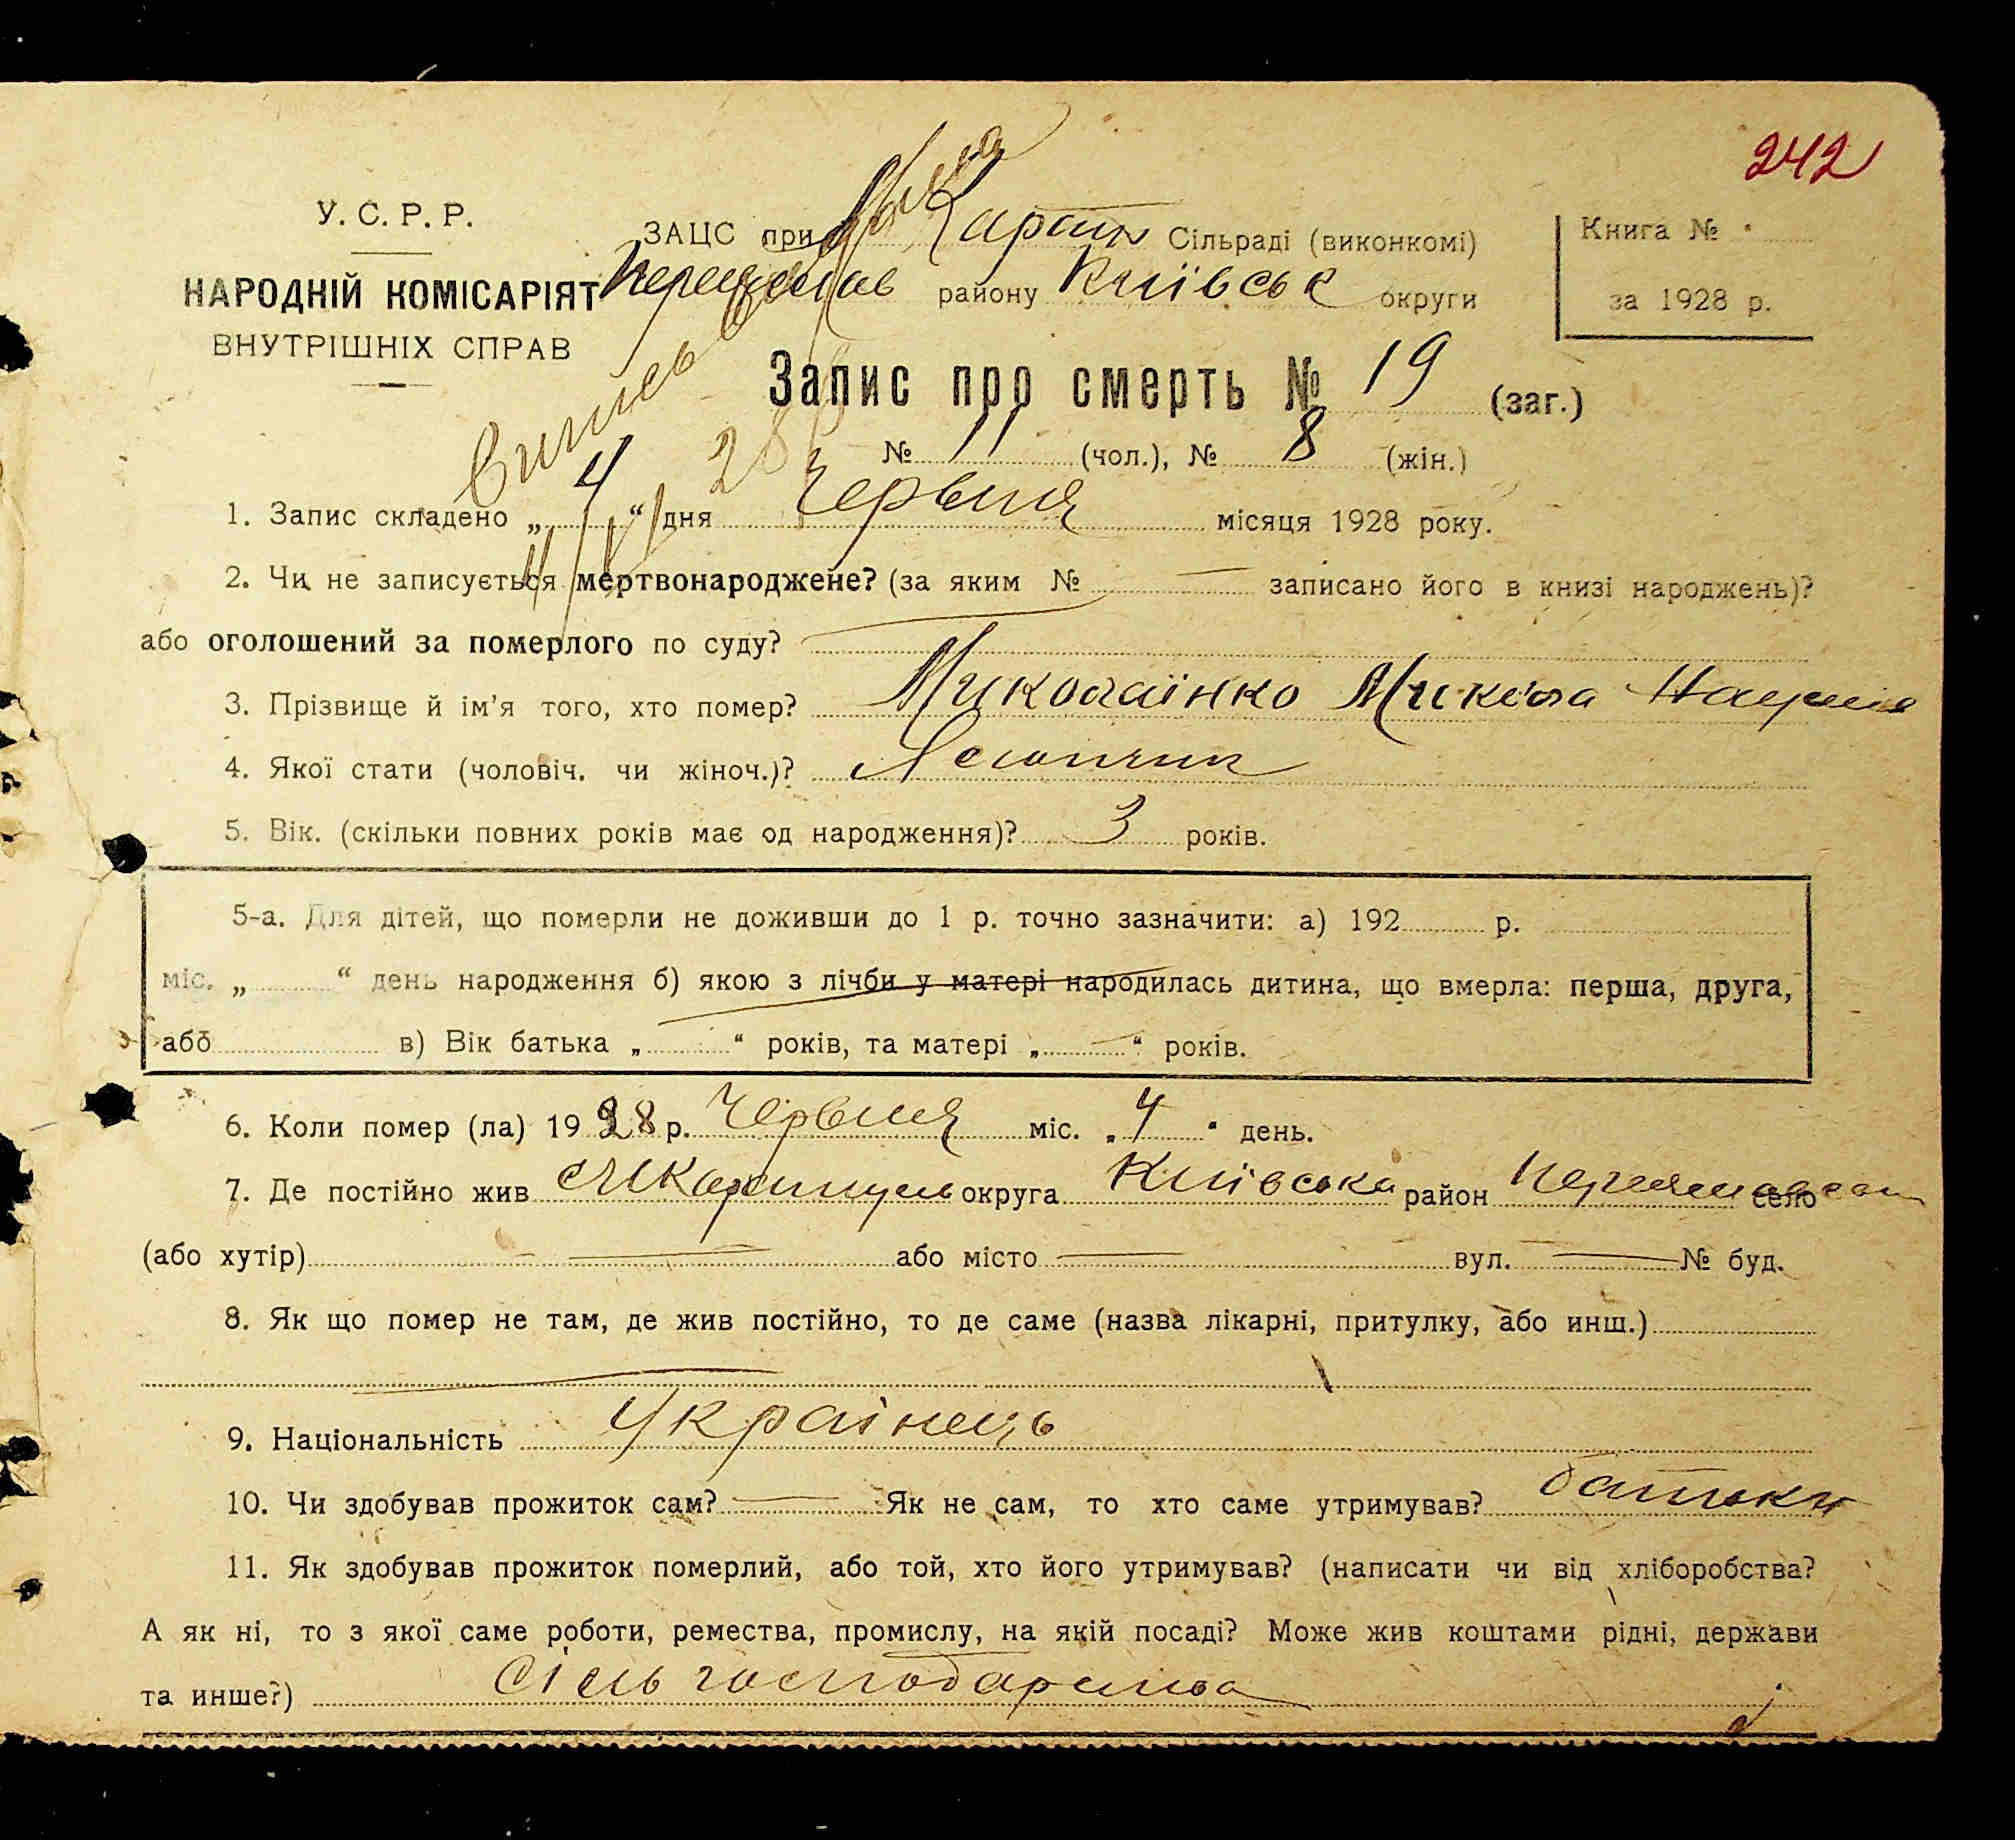 242
У. С. Р. Р.
НАРОДНІЙ КОМІСАРІЯТ
ВНУТРІШНІХ СПРАВ
ЗАЦС при Карат Сільраді (виконкомі)
Переяслав району Київськ округи
Книга №
за 1928 р.
Запис про смерть № 19 (заг.)
№ 11 (чол.), № 8 (жін.)
1. Запис складено „ 4 “ дня Червня місяця 1928 року.
2. Чи не записується мертвонароджене? (за яким № — записано його в книзі народжень)?
або оголошений за померлого по суду?
3. Прізвище й ім’я того, хто помер? Миколаїнко Микита
4. Якої стати (чоловіч. чи жіноч.)?
5. Вік. (скільки повних років має од народження)? 3 років.
5-а. Для дітей, що померли не доживши до 1 р. точно зазначити: а) 192 р.
міс. „ “ день народження б) якою з лічби у матері народилась дитина, що вмерла: перша, друга,
або в) Вік батька „ “ років, та матері „ “ років.
6. Коли помер (ла) 1928 р. Червня міс. „ 4 “ день.
7. Де постійно жив округа Київська район село
(або хутір) — або місто — вул. — № буд.
8. Як що помер не там, де жив постійно, то де саме (назва лікарні, притулку, або инш.)
9. Національність Українець
10. Чи здобував прожиток сам? — Як не сам, то хто саме утримував? батьки
11. Як здобував прожиток померлий, або той, хто його утримував? (написати чи від хліборобства?
А як ні, то з якої саме роботи, ремества, промислу, на якій посаді? Може жив коштами рідні, держави
та инше?) Сісль господарства